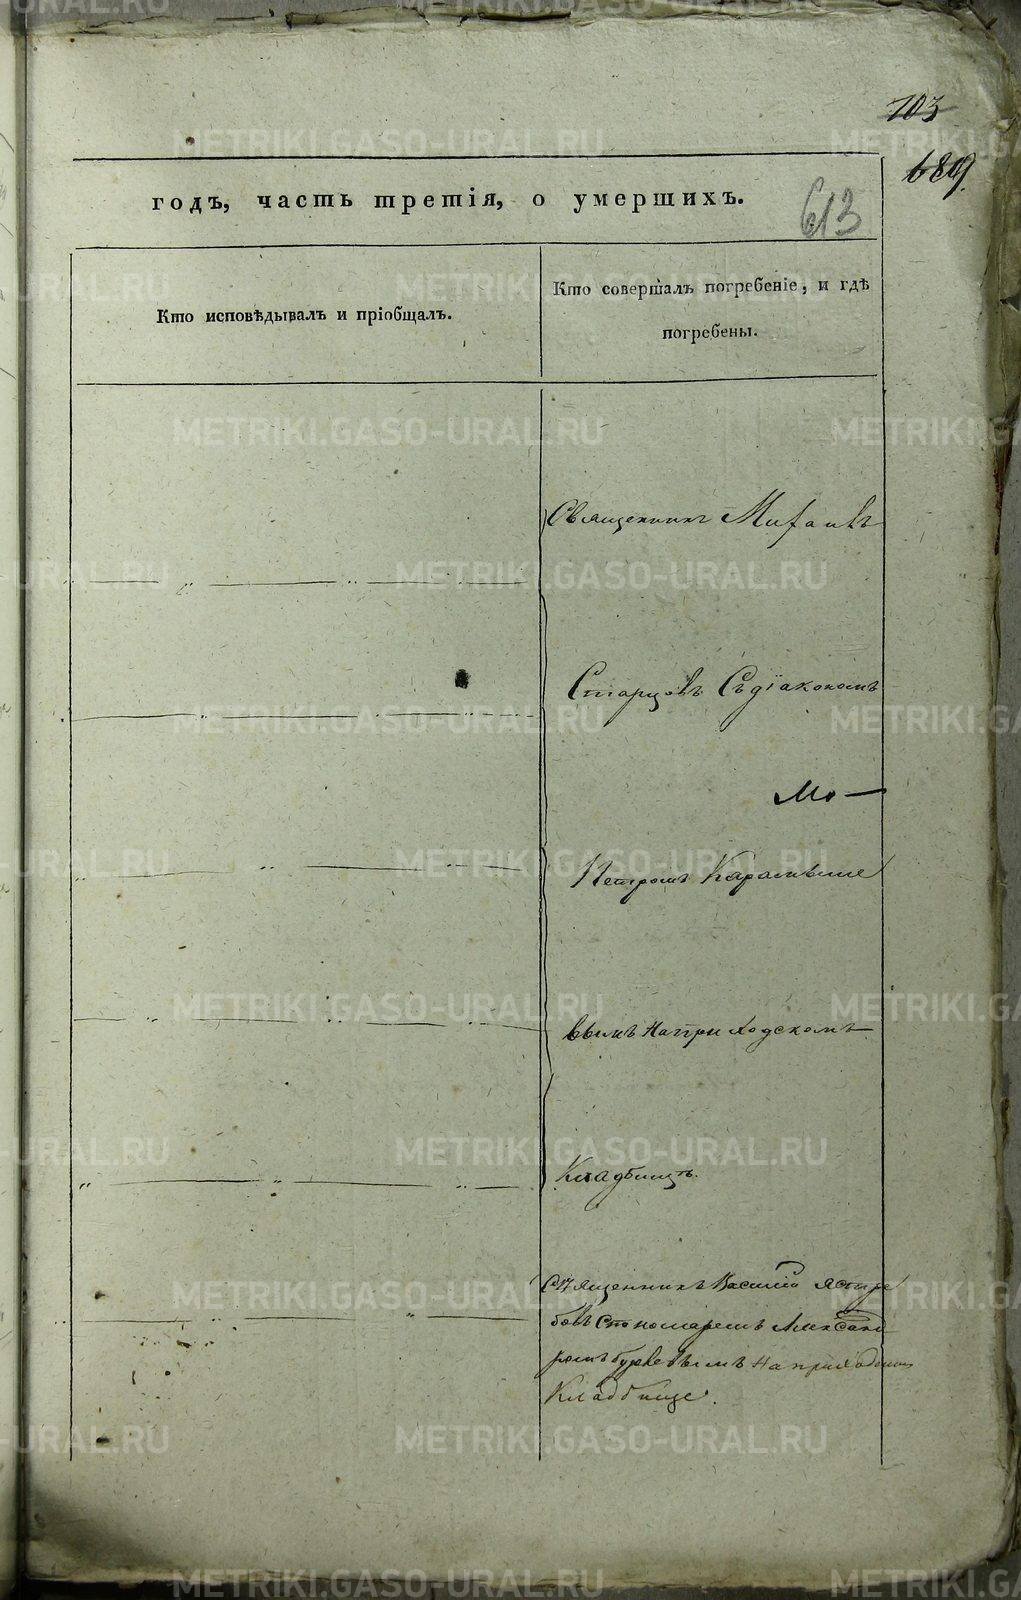 103
689.
613
годъ, часть третія, о умершихъ.
Кто исповѣдывалъ и пріобщалъ.
Кто совершалъ погребеніе, и гдѣ
погребены.
Священникъ Михаилъ
Старцовъ Съдіакономъ
Мо—
Петромъ Карамыше
вымъ наприходскомъ
Кладбищѣ.
Священникъ Василій Ястре
бовъ Спономаремъ Александ
ромъ наприходском
Кладбище.
METRIKI.GASO-URAL.RU